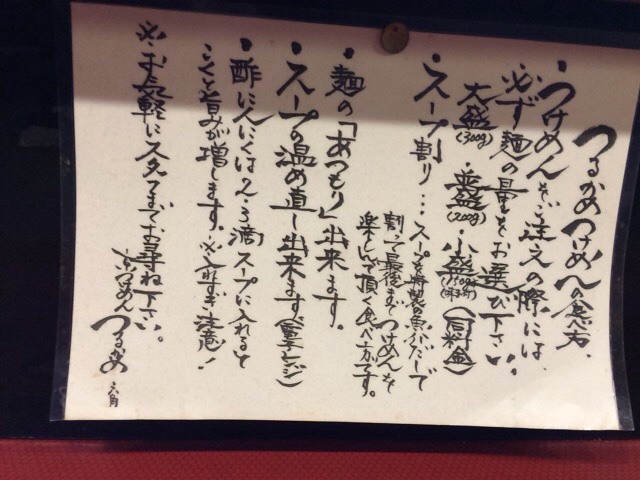 つるかめつけめんの食べ方.
・つけめんをご注文の際には
必ず麺の量をお選び下さい。
大盛(300g)・並盛(200g)・小盛(150g)(同料金)
・スープ割り…スープを特製の魚介だしで
割って最後までつけめんを
楽しんで頂く食べ方です。
・麺の「あつもり」出来ます。
・スープの温め直し出来ます(電子レンジ)
・酢にんにくは2、3滴スープに入れると
こくと旨みが増します。※入れすぎ注意!
※お気軽にスタフまでお尋ね下さい。
京都つけめんつるかめ 六角